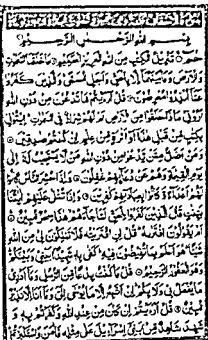 بِسْمِ اللهِ الرَّحْمٰنِ الرَّحِيْمِ
حم تنزيل الكتب من الله العزيز الحكيم ما خلقنا السموت
والارض وما بينهما الا بالحق واجل مسمى والذين كفروا
عما انذروا معرضون قل ارءيتم ما تدعون من دون الله
اروني ماذا خلقوا من الارض ام لهم شرك في السموت ايتوني
بكتب من قبل هذا او اثرة من علم ان كنتم صدقين
ومن اضل ممن يدعوا من دون الله من لا يستجيب له الى
يوم القيمة وهم عن دعائهم غفلون واذا حشر الناس كانوا
لهم اعداء وكانوا بعبادتهم كفرين واذا تتلى عليهم ايتنا
بينت قال الذين كفروا للحق لما جاءهم هذا سحر مبين
ام يقولون افترىه قل ان افتريته فلا تملكون لي من الله
شيئا هو اعلم بما تفيضون فيه كفى به شهيدا بيني وبينكم
وهو الغفور الرحيم قل ما كنت بدعا من الرسل وما ادري
ما يفعل بي ولا بكم ان اتبع الا ما يوحى الي وما انا الا نذير
مبين قل ارءيتم ان كان من عند الله وكفرتم به و
شهد شاهد من بني اسراءيل على مثله فامن واستكبرتم